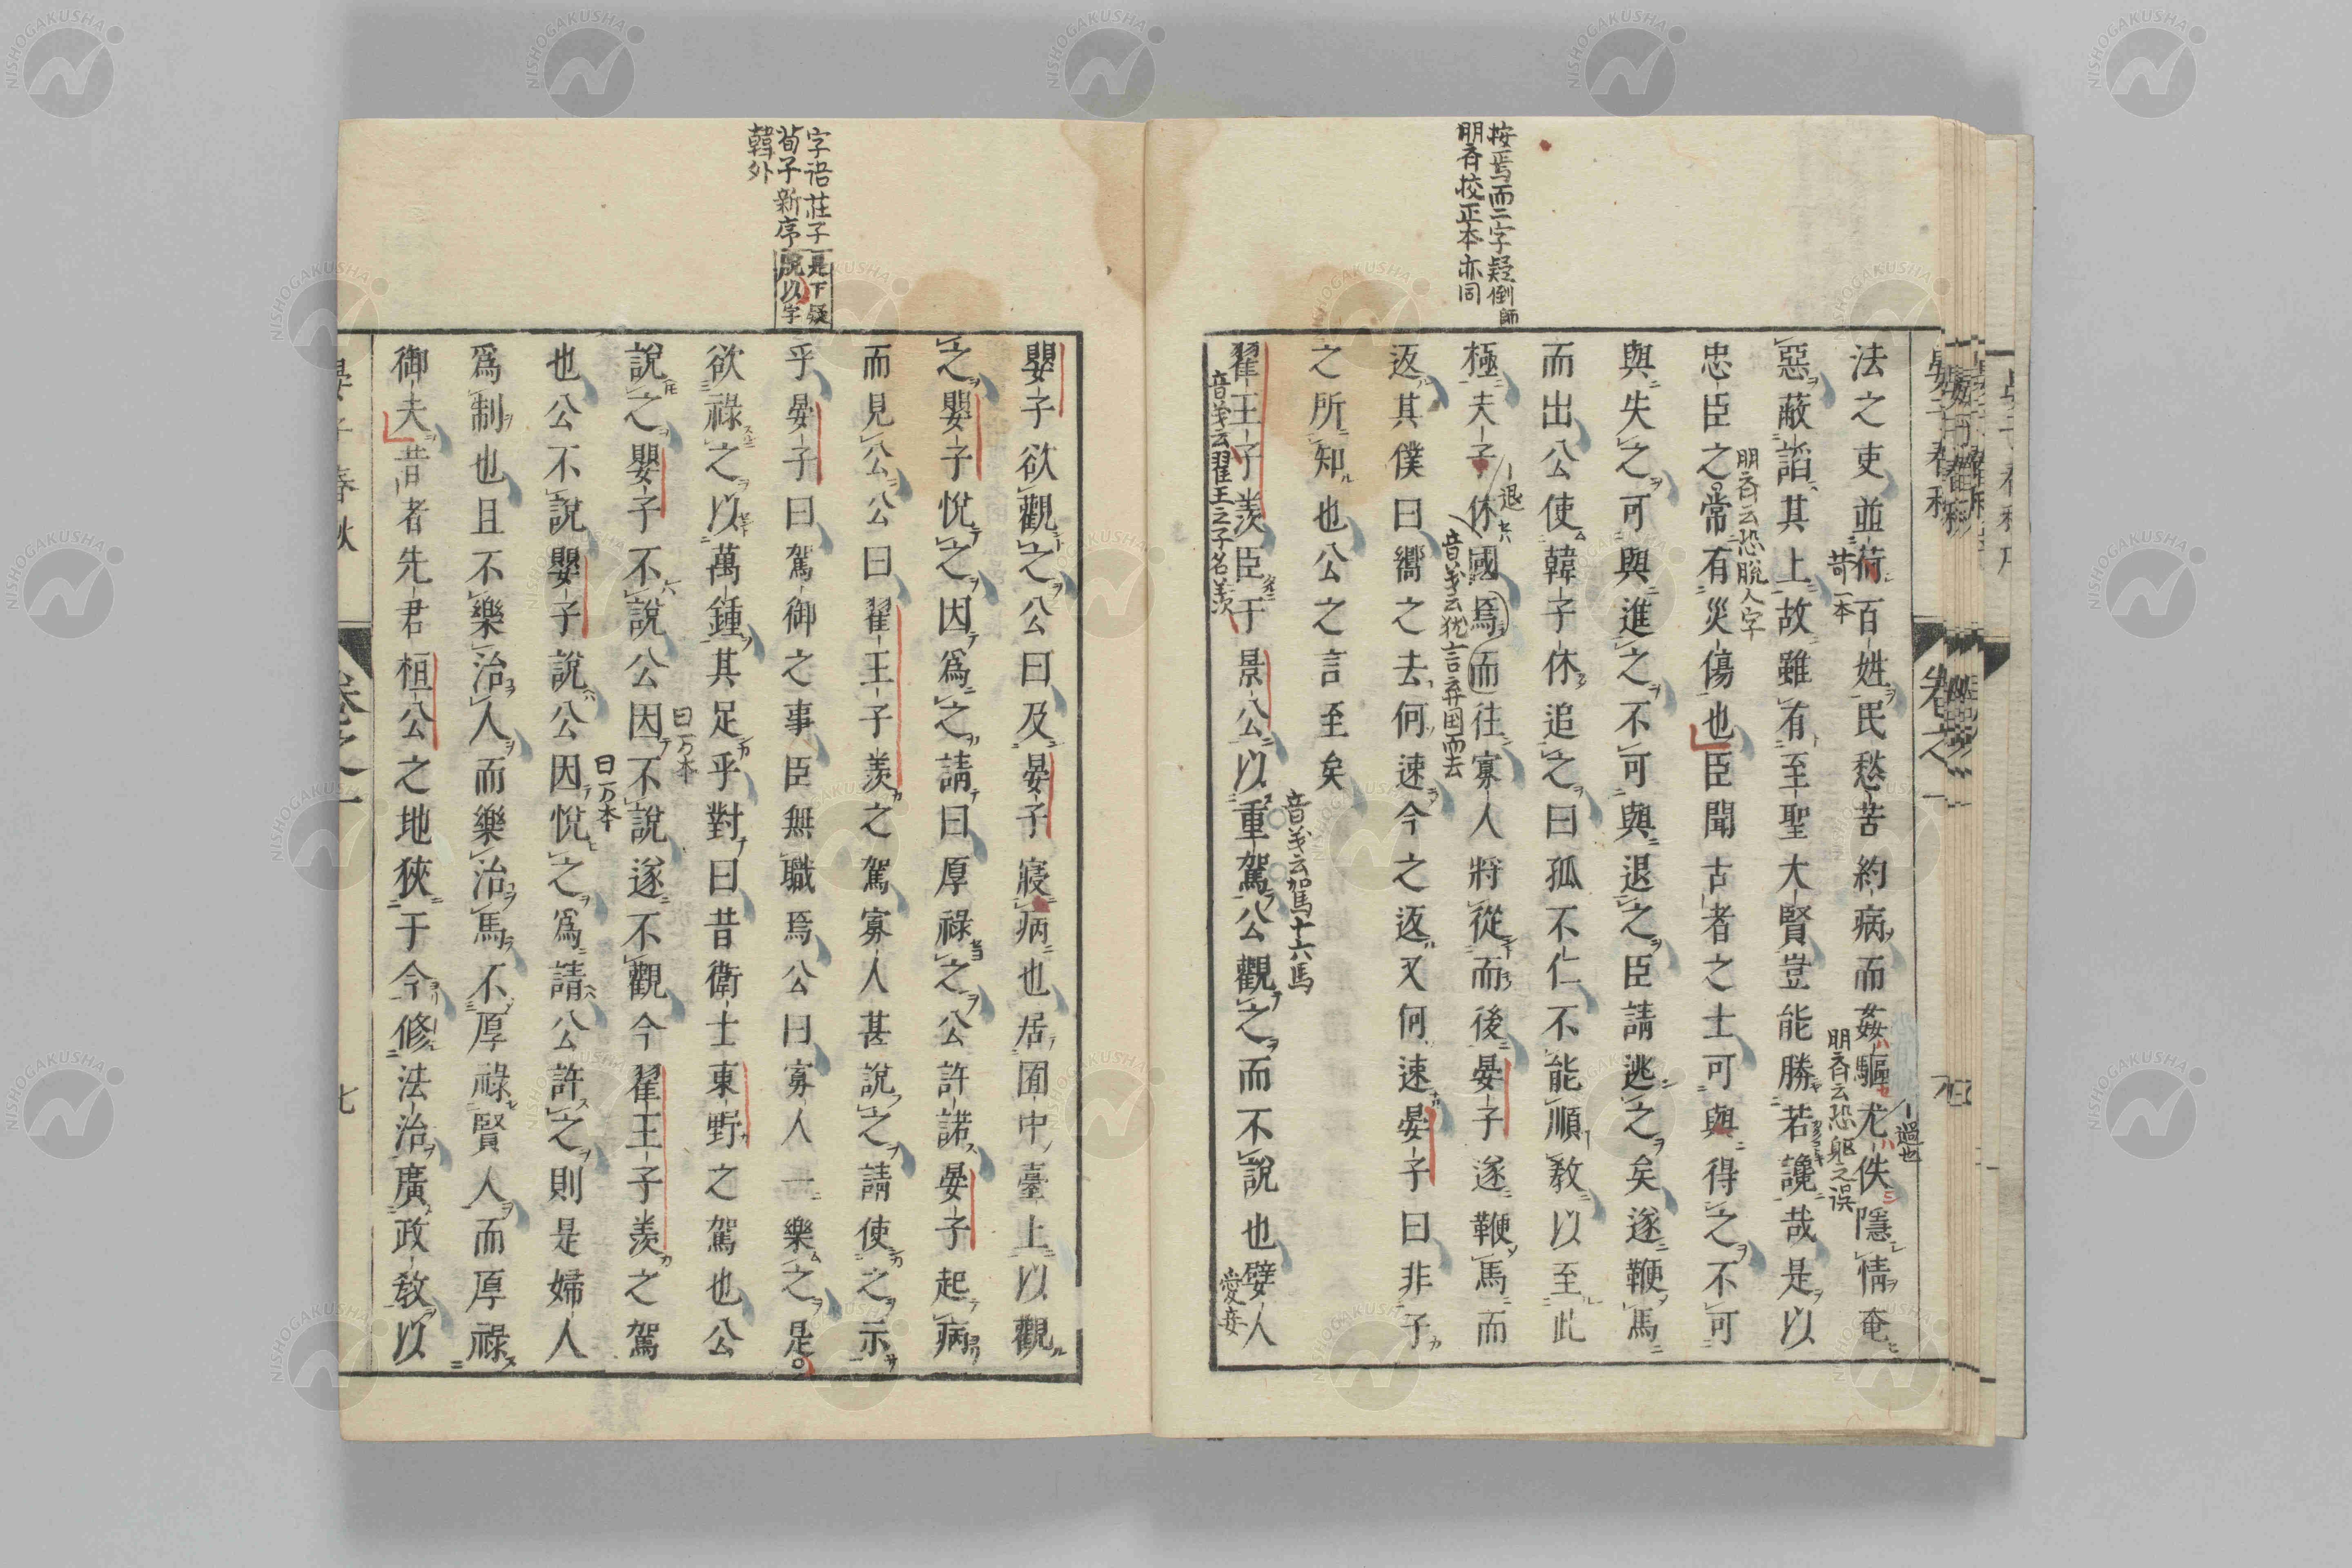 按焉而二字疑倒師
明吞挍正本亦同
法之吏並荷百姓民愁苦約病而姦驅尤佚隱情奄
苛一本
過也
惡蔽諂其上故雖有至聖大賢豈能勝若讒哉是以
明吞云恐躯之误
忠臣之常有災傷也臣聞古者之士可與得之不可
明吞云恐脱人字
與失之可與進之不可與退之臣請逃之矣遂鞭馬
而出公使韓子休追之曰孤不仁不能順教以至此
極夫子休國焉而往寡人將從而後晏子遂鞭馬而
退
音義云犹言弃国而去
返其僕曰嚮之去何速今之返又何速晏子曰非子
之所知也公之言至矣
音義云駕十六馬
翟王子羨臣于景公以重駕公觀之而不說也嬖人
音義云翟王之子名羨
愛妾
字语莊子
荀子新序
韓外
是下疑
脱以字
嬰子欲觀之公曰及晏子寢病也居囿中臺上以觀
之嬰子悅之因爲之請曰厚祿之公許諾晏子起病
而見公公曰翟王子羨之駕寡人甚說之請使之示
乎晏子曰駕御之事臣無職焉公曰寡人一樂之是
欲祿之以萬鍾其足乎對曰昔衛士東野之駕也公
說之嬰子不說公因不說遂不觀今翟王子羨之駕
曰一万本
也公不說嬰子說公因悅之爲請公許之則是婦人
曰一万本
爲制也且不樂治人而樂治馬不厚祿賢人而厚祿
御夫昔者先君桓公之地狹于今修法治廣政教以
晏子春秋
卷之一
七